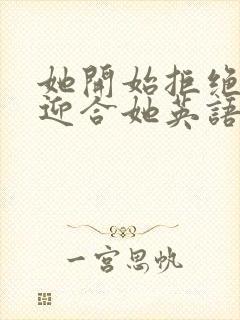 她開始拒絕
迎合她英語
一宮思帆